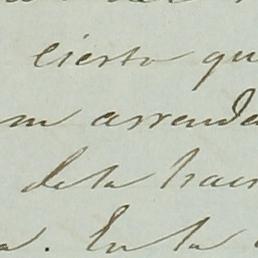 cierto qu
m arrenda
de la hac
a. En la